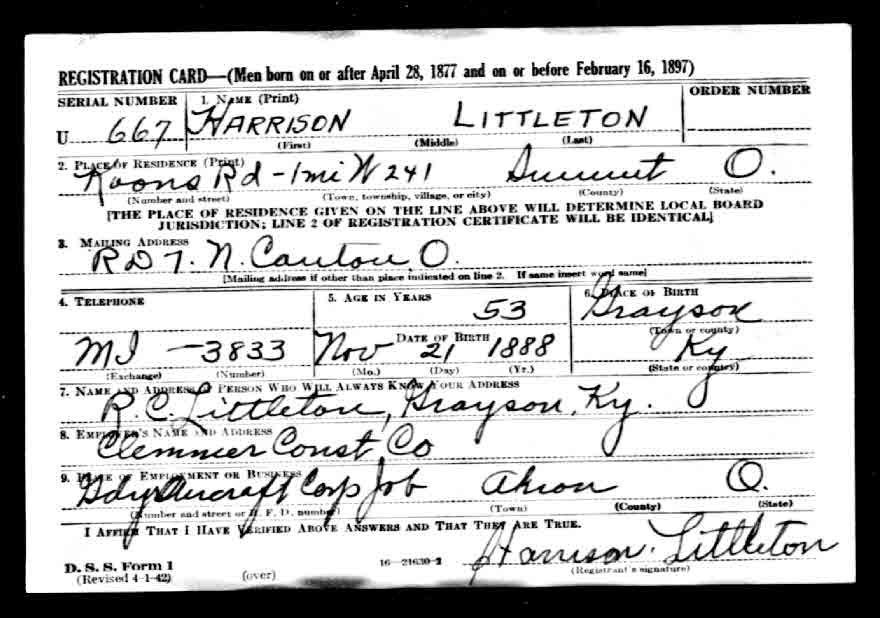 REGISTRATION CARD—(Men born on or after April 28, 1877 and on or before February 16, 1897)
SERIAL NUMBER 1. NAME (Print) ORDER NUMBER
U 667 HARRISON LITTLETON
(First) (Middle) (Last)
2. PLACE OF RESIDENCE (Print)
Koons Rd - 1 mi W 241 Summit O.
(Number and street) (Town, township, village, or city) (County) (State)
[THE PLACE OF RESIDENCE GIVEN ON THE LINE ABOVE WILL DETERMINE LOCAL BOARD
JURISDICTION; LINE 2 OF REGISTRATION CERTIFICATE WILL BE IDENTICAL]
3. MAILING ADDRESS
R D 7. N. Canton, O.
[Mailing address if other than place indicated on line 2. If same insert word same]
4. TELEPHONE 5. AGE IN YEARS 6. PLACE OF BIRTH
53 Grayson
(Town or county)
DATE OF BIRTH
MI - 3833 Nov 21 1888 Ky
(Exchange) (Number) (Mo.) (Day) (Yr.) (State or country)
7. NAME AND ADDRESS OF PERSON WHO WILL ALWAYS KNOW YOUR ADDRESS
R. C. Littleton, Grayson, Ky.
8. EMPLOYER'S NAME AND ADDRESS
Clemmer Const Co
9. PLACE OF EMPLOYMENT OR BUSINESS
Gdyr Aircraft Corp Job Akron O.
(Number and street or R. F. D. number) (Town) (County) (State)
I AFFIRM THAT I HAVE VERIFIED ABOVE ANSWERS AND THAT THEY ARE TRUE.
Harrison Littleton
D. S. S. Form 1 16—21630-2 (Registrant's signature)
(Revised 4-1-42) (over)